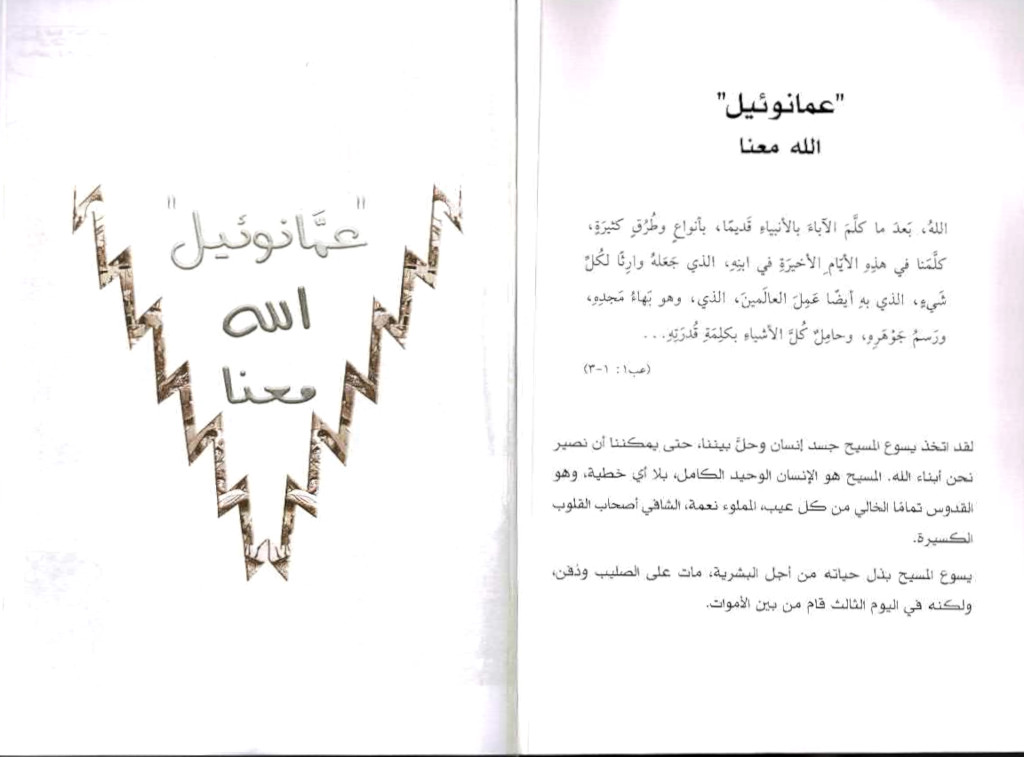 "عمانوئيل"
الله معنا
اللهُ، بَعدَ ما كلَّمَ الآباءَ بالأنبياءِ قَديمًا، بأنواعٍ وطُرُقٍ كثيرَةٍ،
كلَّمَنا في هذِهِ الأيّامِ الأخيرَةِ في ابنِهِ، الذي جَعَلهُ وارِثًا لكُلِّ
شَيءٍ، الذي بهِ أيضًا عَمِلَ العالَمينَ، الذي، وهو بَهاءُ مَجدِهِ،
ورَسمُ جَوْهَرِهِ، وحامِلٌ كُلَّ الأشياءِ بكلِمَةِ قُدرَتِهِ...
(عب١: ١-٣)
لقد اتخذ يسوع المسيح جسد إنسان وحلَّ بيننا، حتى يمكننا أن نصير
نحن أبناء الله. المسيح هو الإنسان الوحيد الكامل، بلا أي خطية، وهو
القدوس تمامًا الخالي من كل عيب، المملوء نعمة، الشافي أصحاب القلوب
الكسيرة.
يسوع المسيح بذل حياته من أجل البشرية، مات على الصليب ودُفن،
ولكنه في اليوم الثالث قام من بين الأموات.
"عمَّانوئيل"
الله
معنا